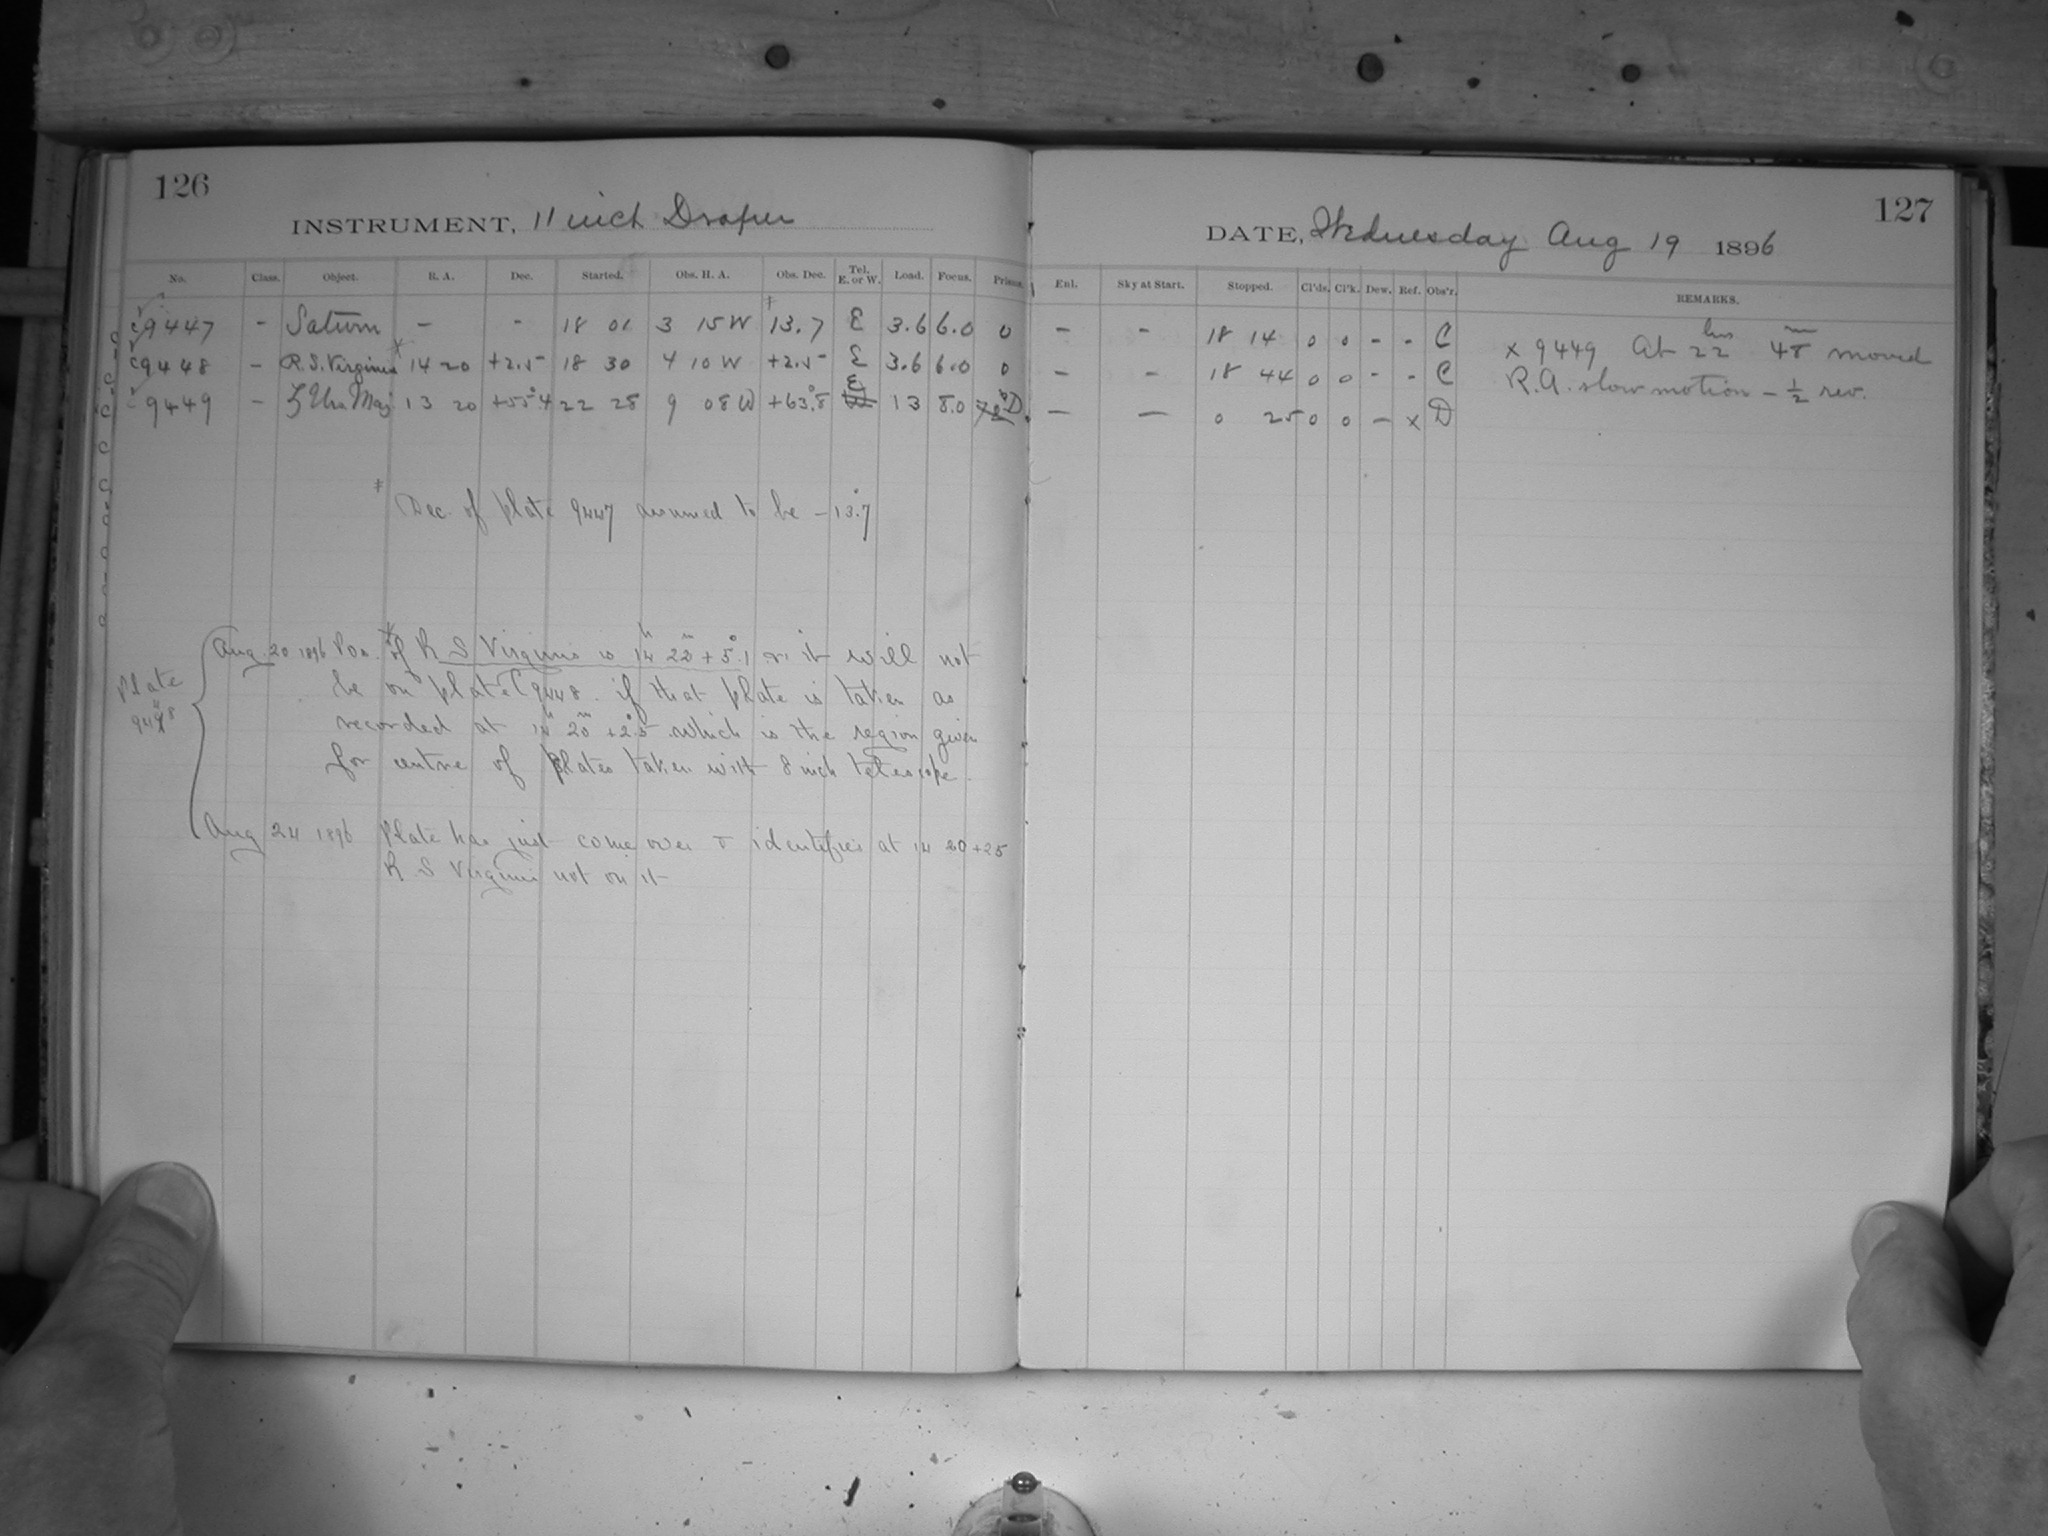 126
INSTRUMENT, 11 inch Draper
No. Class. Object. R. A. Dec. Started. Obs. H. A. Obs. Dec. Tel. E. or W. Load. Focus. Prisms.
C 9447 - Saturn - - 18 01 3 15 W 13.7 E 3.6 6.0 0
C 9448 - R.S. Virginis 14 20 +2.5 18 30 4 10 W +2.5 E 3.6 6.0 0
C 9449 - ζ Urs Maj. 13 20 +55°.4 22 28 9 08 W +63°.8 E 13 8.0 D
Dec. of plate 9447 assumed to be -13°.7
Plate
9448
Aug. 20 1896 Pos. of R S Virginis is 14h 22m +5°.1 & it will not
be on plate C 9448 if that plate is taken as
recorded at 14h 20m +2°.5 which is the region given
for centre of plates taken with 8 inch telescope.
Aug 24 1896 Plate has just come over & identifies at 14 20 +25
R S Virginis not on it
127
DATE, Wednesday Aug 19 1896
Enl. Sky at Start. Stopped. Cl'ds. Cl'k. Dew. Ref. Obs'r. REMARKS.
- - 18 14 0 0 - - C
- - 18 44 0 0 - - C
- - 0 25 0 0 - x D
x 9449 At 22 hrs 48 m moved
R.A. slow motion - 1/2 rev.